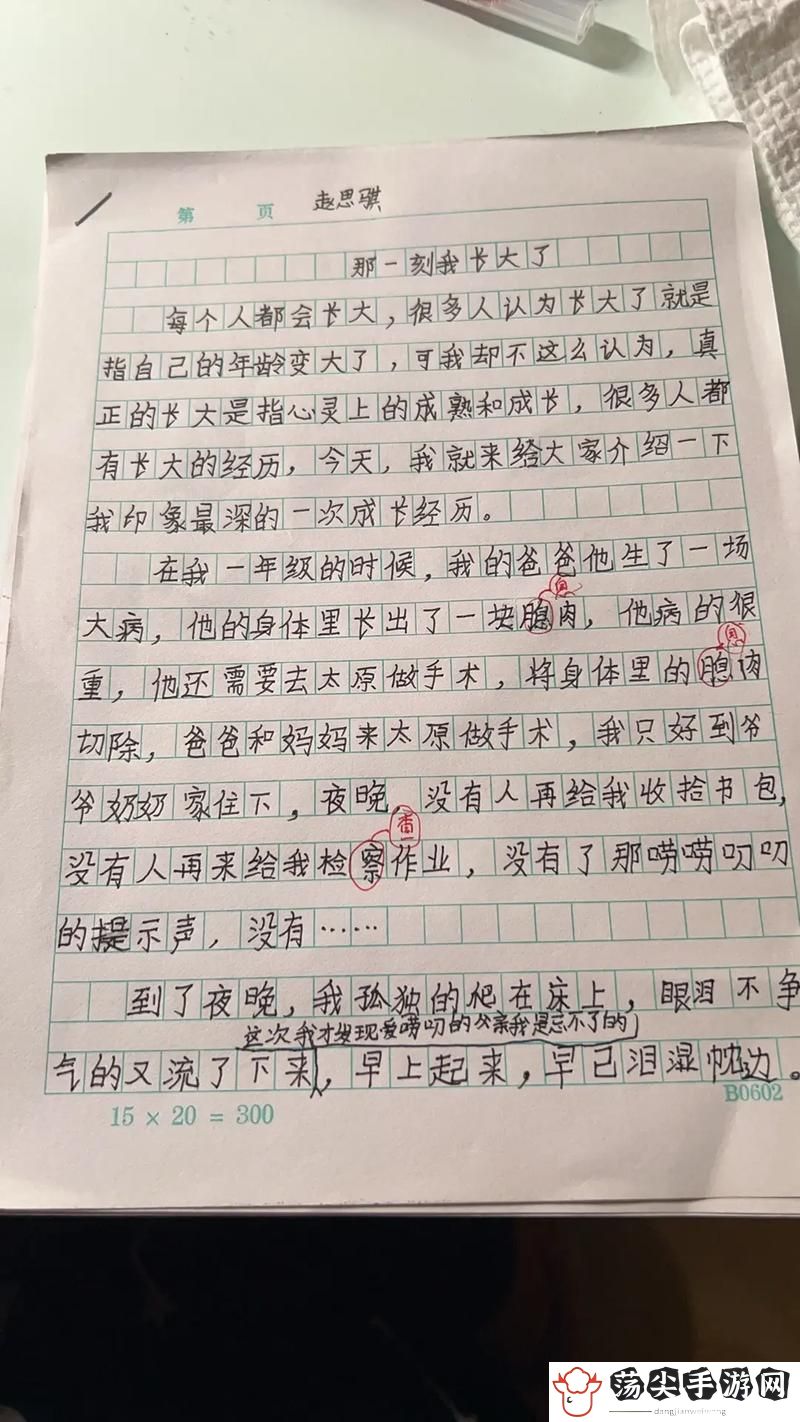 第 页 赵思骐
那一刻我长大了
每个人都会长大，很多人认为长大了就是
指自己的年龄变大了，可我却不这么认为，真
正的长大是指心灵上的成熟和成长，很多人都
有长大的经历，今天，我就来给大家介绍一下
我印象最深的一次成长经历。
在我一年级的时候，我的爸爸他生了一场
息
大病，他的身体里长出了一块腮肉，他病的很
息
重，他还需要去太原做手术，将身体里的腮肉
切除，爸爸和妈妈来太原做手术，我只好到爷
爷奶奶家住下，夜晚，没有人再给我收拾书包，
查
没有人再来给我检察作业，没有了那唠唠叨叨
的提示声，没有……
到了夜晚，我孤独的爬在床上，眼泪不争
这次我才发现爱唠叨的父亲我是忘不了的
气的又流了下来，早上起来，早已泪湿枕边。
B0602
15 × 20 = 300
荡尖手游网